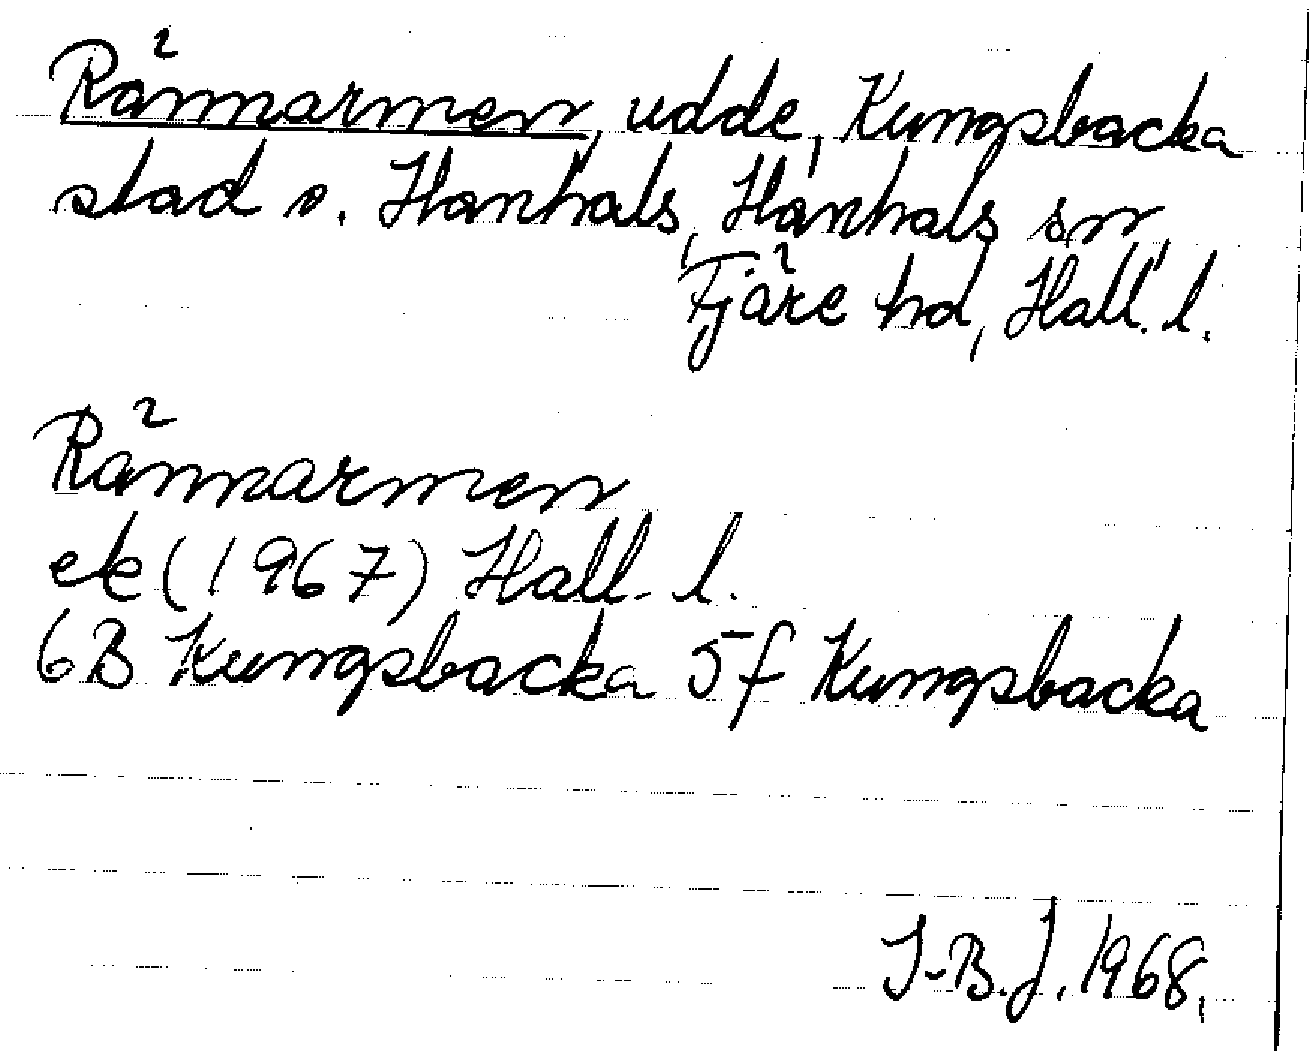 Rännarmen, udde, Kungsbacka
stad o. Hanhals, Hanhals sn,
Fjäre hd, Hall. l.
Rännarmen
ek (1967) Hall. l.
6B Kungsbacka 5f Kungsbacka
I-B.J. 1968.